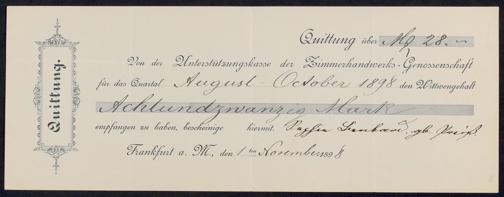 Quittung.
Quittung über M 28.—
Von der Unterstützungskasse der Zimmerhandwerks-Genossenschaft
für das Quartal August - October 1898 den Wittwengehalt
Achtundzwanzig Mark
empfangen zu haben, bescheinige hiermit. Sophie gb.
Frankfurt a. M., den 1ten November 1898